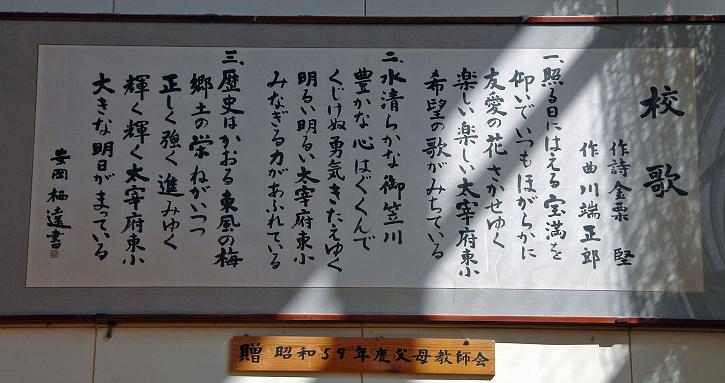 校歌
作詩金栗 堅
作曲川端正郎
一、照る日にはえる宝満を
仰いでいつもほがらかに
友愛の花さかせゆく
楽しい楽しい太宰府東小
希望の歌がみちている
二、水清らかな御笠川
豊かな心はぐくんで
くじけぬ勇気きたえゆく
明るい明るい太宰府東小
みなぎる力があふれている
三、歴史はかおる東風の梅
郷土の栄ねがいつつ
正しく強く進みゆく
輝く輝く太宰府東小
大きな明日がまっている
安岡 栖遠書
贈 昭和59年度父母教師会